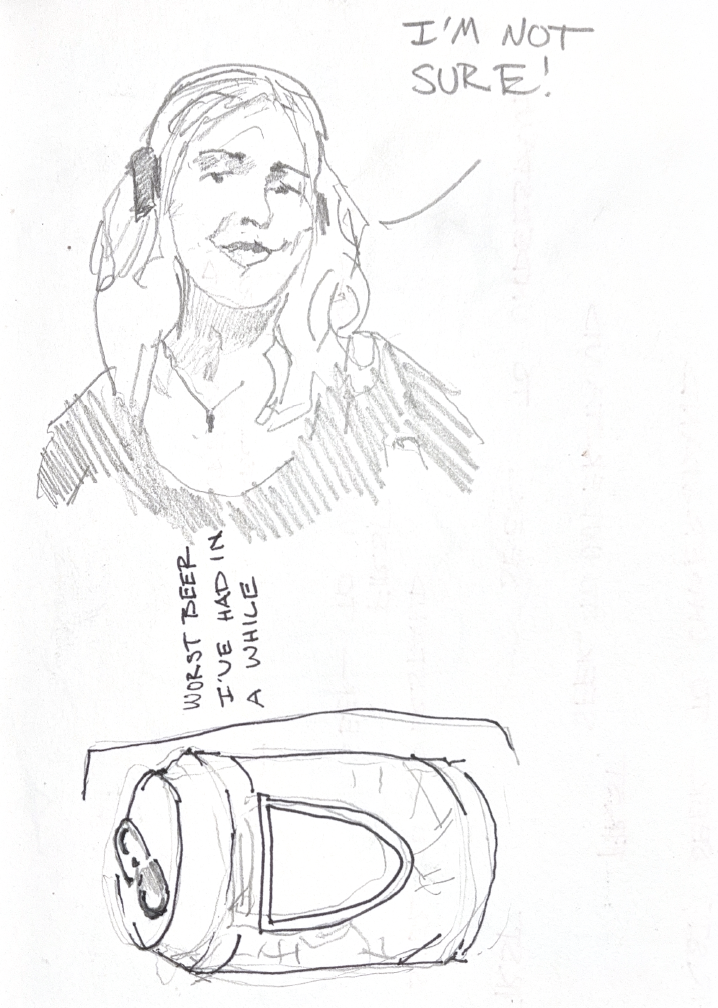 I'M NOT
SURE!
WORST BEER
I'VE HAD IN
A WHILE